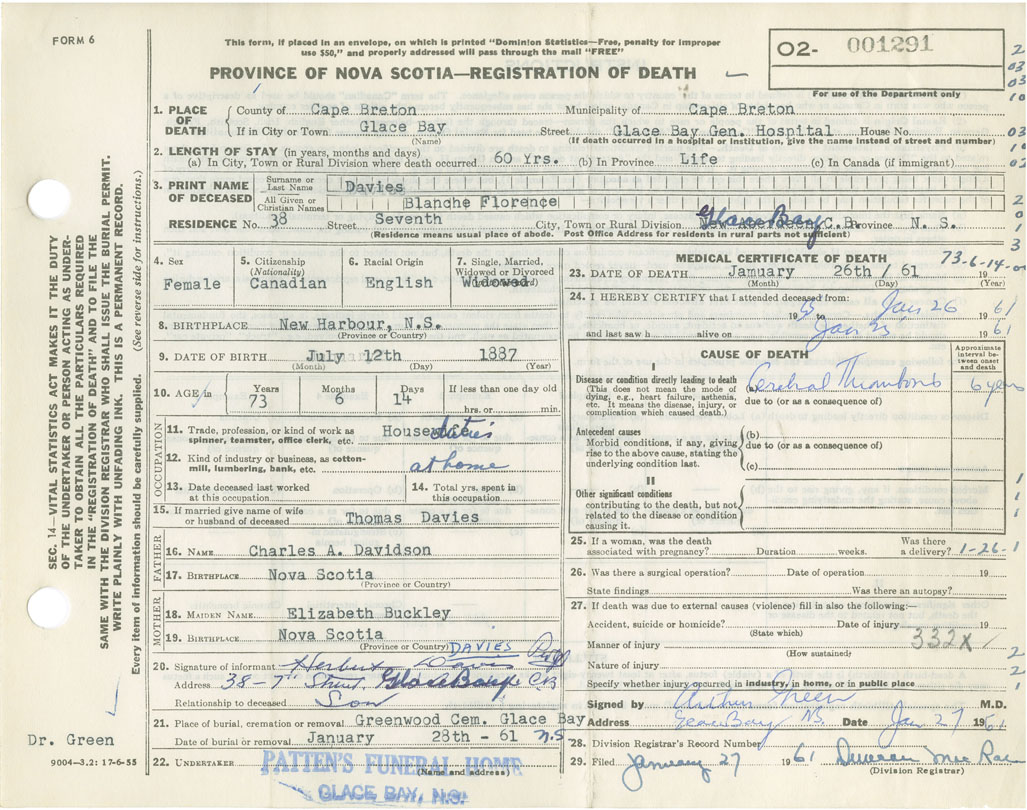 FORM 6
This form, if placed in an envelope, on which is printed "Dominion Statistics—Free, penalty for improper
use $50," and properly addressed will pass through the mail "FREE"
O2- 001291
PROVINCE OF NOVA SCOTIA—REGISTRATION OF DEATH
For use of the Department only
1. PLACE OF DEATH
County of Cape Breton Municipality of Cape Breton
If in City or Town Glace Bay Street Glace Bay Gen. Hospital House No.
(Name) (If death occurred in a hospital or institution, give the name instead of street and number)
2. LENGTH OF STAY (in years, months and days)
(a) In City, Town or Rural Division where death occurred 60 Yrs. (b) In Province Life (c) In Canada (if immigrant)
3. PRINT NAME OF DECEASED
Surname or Last Name Davies
All Given or Christian Names Blanche Florence
RESIDENCE No. 38 Street Seventh City, Town or Rural Division Glace Bay C.B. Province N. S.
(Residence means usual place of abode. Post Office Address for residents in rural parts not sufficient)
4. Sex
Female
5. Citizenship
(Nationality)
Canadian
6. Racial Origin
English
7. Single, Married,
Widowed or Divorced
Widowed
8. BIRTHPLACE New Harbour, N.S.
(Province or Country)
9. DATE OF BIRTH July 12th 1887
(Month) (Day) (Year)
10. AGE
Years Months Days If less than one day old
73 6 14 hrs. or min.
OCCUPATION
11. Trade, profession, or kind of work as
spinner, teamster, office clerk, etc. House duties
12. Kind of industry or business, as cotton-
mill, lumbering, bank, etc. at home
13. Date deceased last worked
at this occupation
14. Total yrs. spent in
this occupation
15. If married give name of wife
or husband of deceased Thomas Davies
FATHER
16. NAME Charles A. Davidson
17. BIRTHPLACE Nova Scotia
(Province or Country)
MOTHER
18. MAIDEN NAME Elizabeth Buckley
19. BIRTHPLACE Nova Scotia
(Province or Country) DAVIES
20. Signature of informant Herbert Davis
Address 38-7th Street, Glace Bay C.B.
Relationship to deceased Son
21. Place of burial, cremation or removal Greenwood Cem. Glace Bay
Date of burial or removal January 28th - 61 N.S
22. UNDERTAKER PATTEN'S FUNERAL HOME
(Name and address)
GLACE BAY, N.S.
MEDICAL CERTIFICATE OF DEATH 73-6-14-
23. DATE OF DEATH January 26th / 61 19
(Month) (Day) (Year)
24. I HEREBY CERTIFY that I attended deceased from:
19 to Jan 26 61
and last saw h alive on Jan 19 61
CAUSE OF DEATH
Approximate
interval be-
tween onset
and death
I
Disease or condition directly leading to death
(This does not mean the mode of
dying, e.g., heart failure, asthenia,
etc. It means the disease, injury, or
complication which caused death.)
(a) Cerebral Thrombosis 6 years
due to (or as a consequence of)
Antecedent causes
Morbid conditions, if any, giving
rise to the above cause, stating the
underlying condition last.
(b)
due to (or as a consequence of)
(c)
II
Other significant conditions
contributing to the death, but not
related to the disease or condition
causing it.
25. If a woman, was the death
associated with pregnancy? Duration weeks. Was there
a delivery? 1-26-1
26. Was there a surgical operation? Date of operation 19
State findings Was there an autopsy?
27. If death was due to external causes (violence) fill in also the following:—
Accident, suicide or homicide? Date of injury 19
(State which)
Manner of injury 332X
(How sustained)
Nature of injury
Specify whether injury occurred in industry, in home, or in public place
Signed by Arthur Green M.D.
Address Glace Bay NS. Date Jan 27 1961
28. Division Registrar's Record Number
29. Filed January 27 1961 Duncan MacRae
(Division Registrar)
SEC. 14—VITAL STATISTICS ACT MAKES IT THE DUTY
OF THE UNDERTAKER OR PERSON ACTING AS UNDER-
TAKER TO OBTAIN ALL THE PARTICULARS REQUIRED
IN THE "REGISTRATION OF DEATH" AND TO FILE THE
SAME WITH THE DIVISION REGISTRAR WHO SHALL ISSUE THE BURIAL PERMIT.
WRITE PLAINLY WITH UNFADING INK. THIS IS A PERMANENT RECORD.
Every item of information should be carefully supplied. (See reverse side for instructions.)
Dr. Green
9004—3.2: 17-6-55